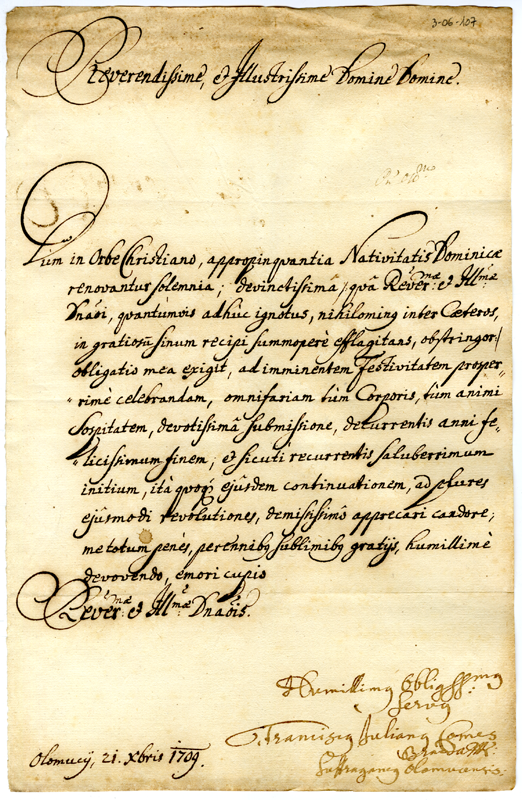 3-06-107
Reverendissime, et Illustrissime Domine Domine.
Cum in Orbe Christiano, appropinqvantia Nativitatis Dominicæ
renovantur solemnia; devinctissimâ, qvâ Rever:mæ et Ill:mæ
Dnãõi, qvantumvis adhùc ignotus, nihilominq inter Cæteros,
in gratiosũ sinum recipi summoperè efflagitans, obstringor,
obligatio mea exigit, ad imminentem Festivitatem prosper-
-rimè celebrandam, omnifariam tùm Corporis, tùm animi
Sospitatem, devotissimâ submissione, decurrentis anni fe-
-licissimum finem, et sicuti recurrentis saluberrimum
initium, ità qvoqz ejusdem continuationem, ad plures
ejusmodi revolutiones, demississimo apprecari candore;
me totum penès, perennibq sublimibq gratijs, humillimè
devovendo, emori cupio
Rever:mæ et Ill:mæ Dnãõis.
Humillimq Obligssimq
Servq
Franciscq Julianq Comes
Suffraganeq Olomucensis
Olomucij, 21. Xbris 1709.